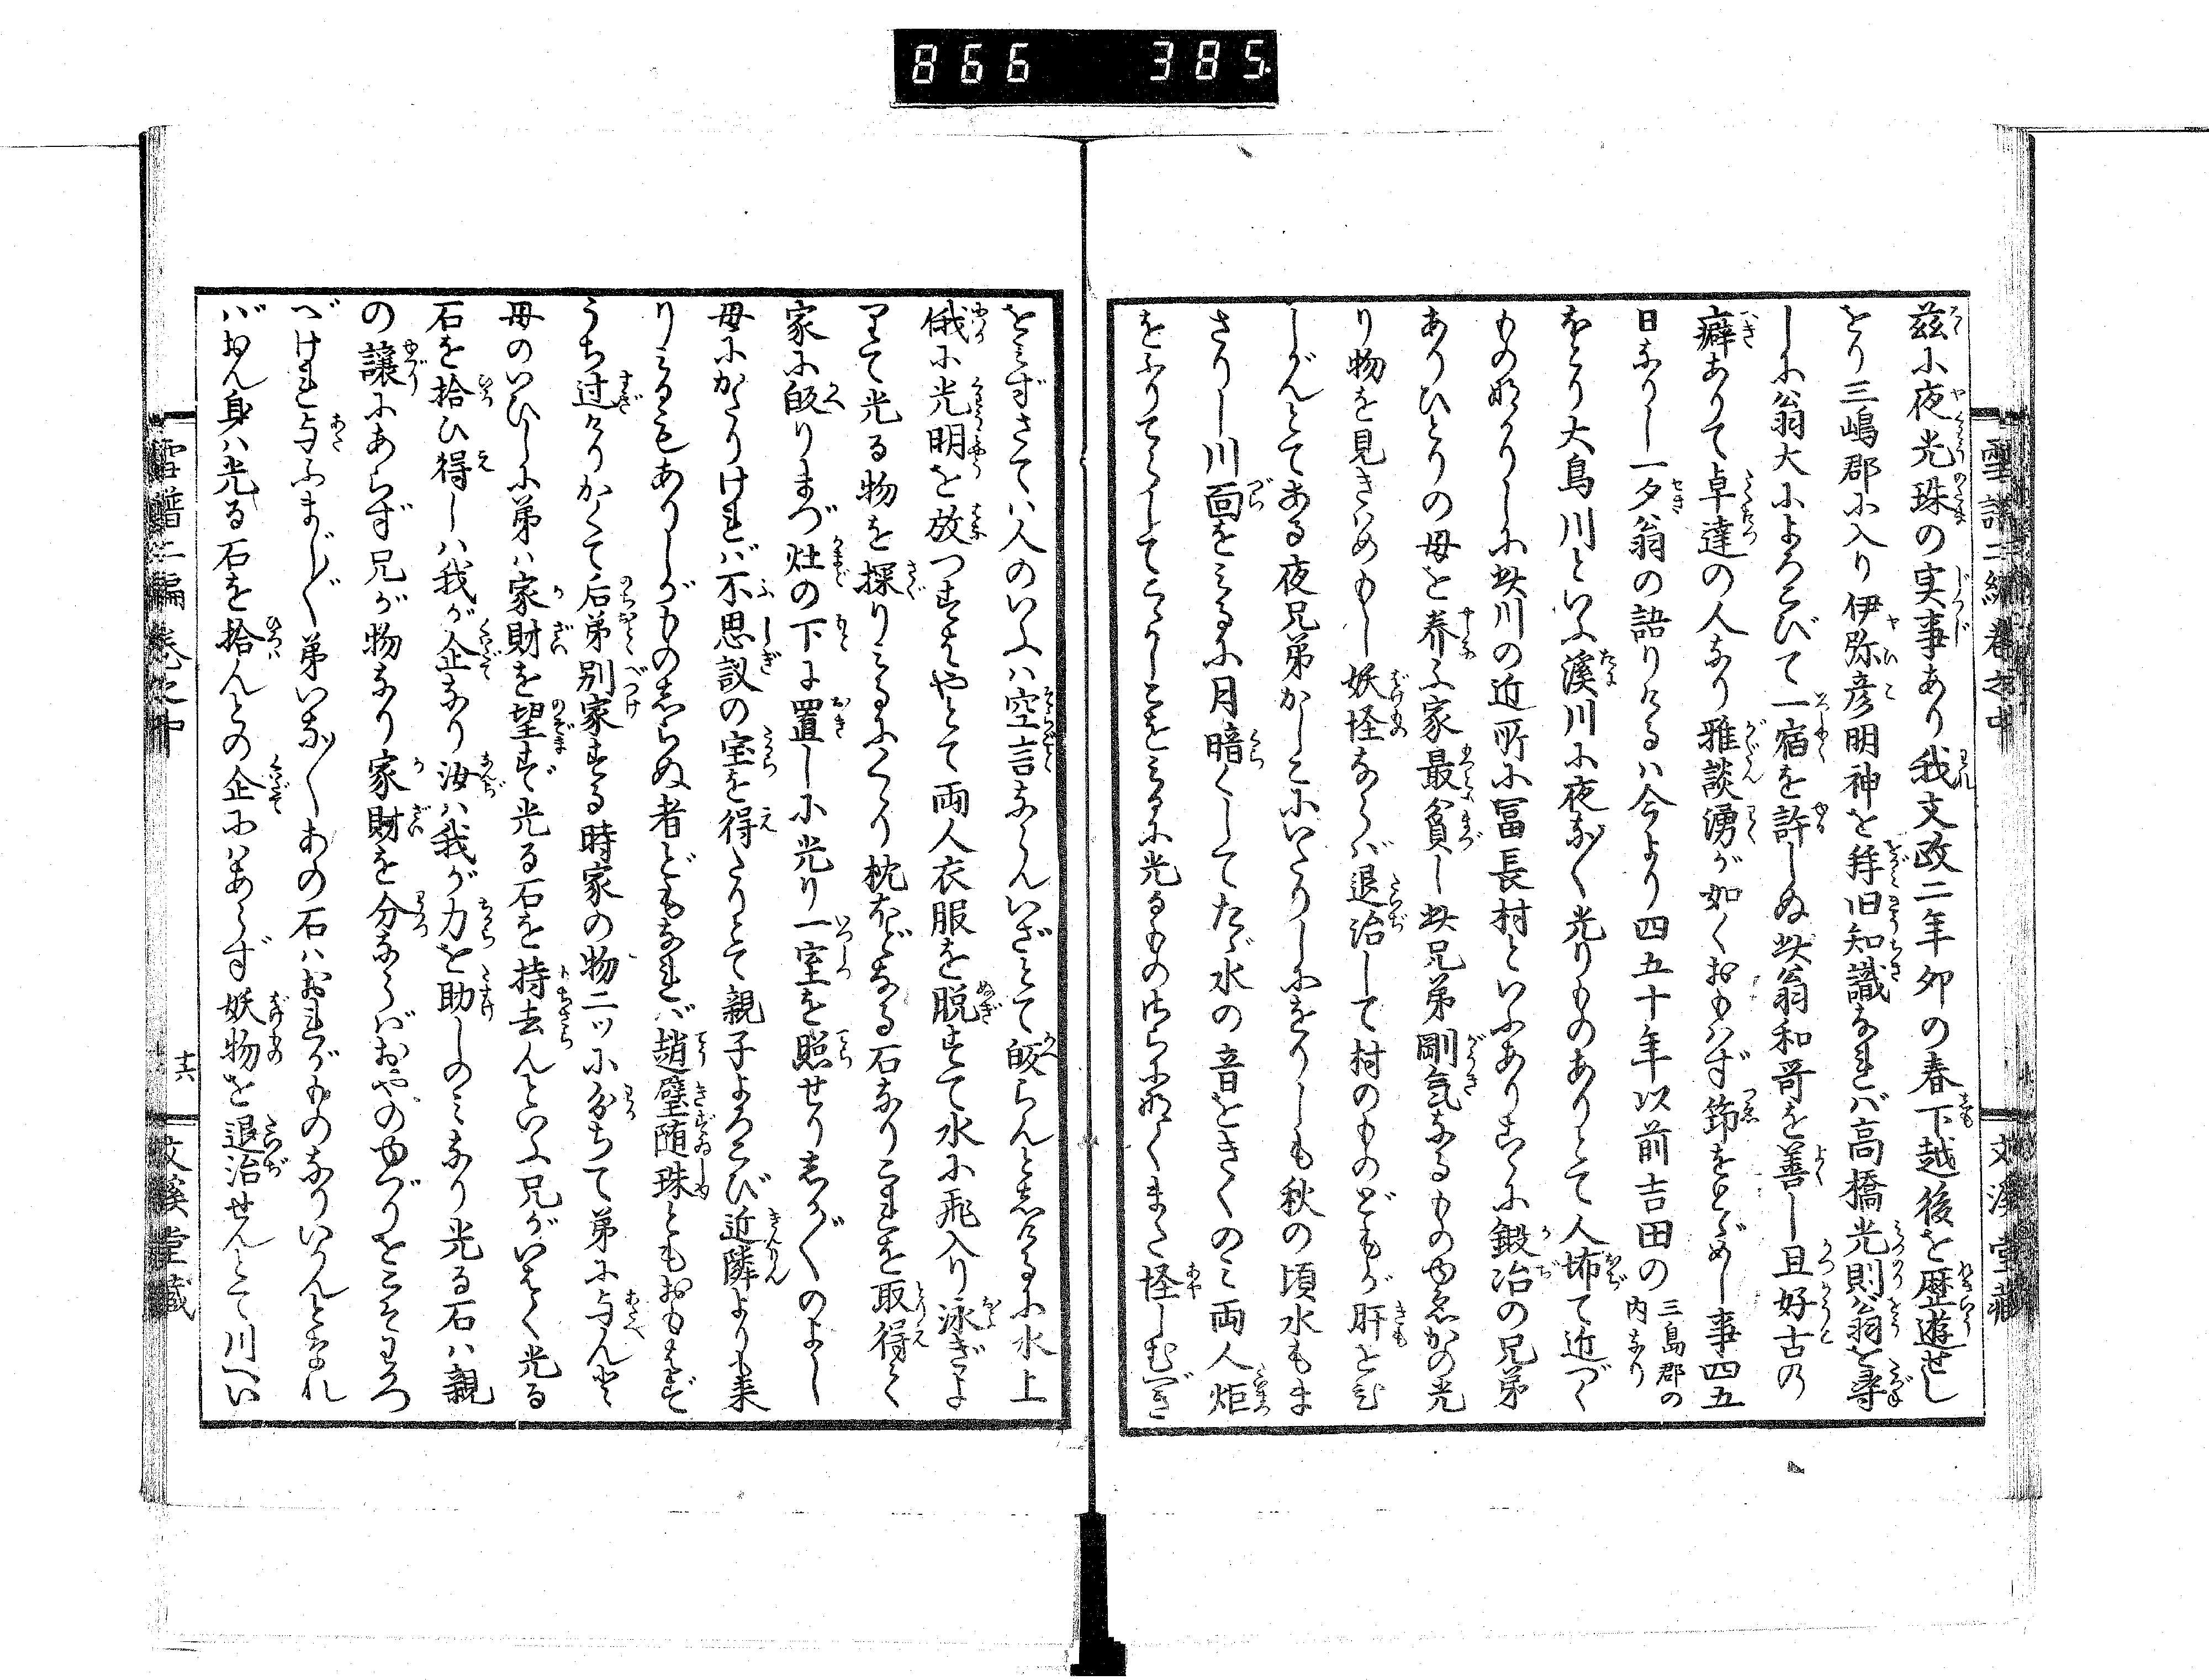 866 385.
雪譜二編 巻之中
文溪堂蔵
茲に夜光珠の実事あり我文政二年卯の春下越後を歴遊せし
をり三嶋郡に入り伊弥彦明神を拝旧知識なれば高橋光則翁を尋
しに翁大によろこびて一宿を許しぬ此翁和哥を善し且好古の
癖ありて卓達の人なり雅談湧が如くおもはず節をとゞめし事四五
日なりし一夕翁の語りけるは今より四五十年以前吉田の三島郡の内なり
ほとり大鳥川といふ溪川に夜な〳〵光りものありとて人怖て近づく
もの無りしに此川の近所に冨長村といふありこゝに鍛冶の兄弟
ありひとりの母を養ふ家最貧し此兄弟剛気なるものゆゑかの光
り物を見きはめもし妖怪ならば退治して村のものどもが肝をひ
しがんとてある夜兄弟かしこにいたりしにをりしも秋の頃水もま
さりし川面をみるに月暗くしてたゞ水の音をきくのみ両人炬
をふりてらしてこゝかしこをみるに光るものさらになくまた怪しむべき
をみずさては人のいふは空言ならんいざとて皈らんとしけるに水上
俄に光明を放つすはやとて両人衣服を脱すて水に飛入り泳ぎよ
りて光る物を探りみるにくゝり枕ほどなる石なりこれを取得て
家に皈りまづ灶の下に置しに光り一室を照せりしか〴〵のよし
母にかたりければ不思議の宝を得たりとて親子よろこび近隣よりも来
りみるもありしがものしらぬ者どもなれば趙璧随珠ともおもはず
うち過けりかくて后弟別家する時家の物二ッに分ちて弟に与んと
母のいひしに弟は家財を望ず光る石を持去んといふ兄がいはく光る
石を拾ひ得しは我が企なり汝は我が力を助しのみなり光る石は親
の譲にあらず兄が物なり家財を分ならばおやのゆづりをこそわかつ
べけれ与ふまじ〳〵弟いな〳〵あの石はおれがものなりいかんとなれ
ばおん身は光る石を拾んとの企にはあらず妖物を退治せんとて川へい
雪譜二編 巻之中
十六
文溪堂蔵